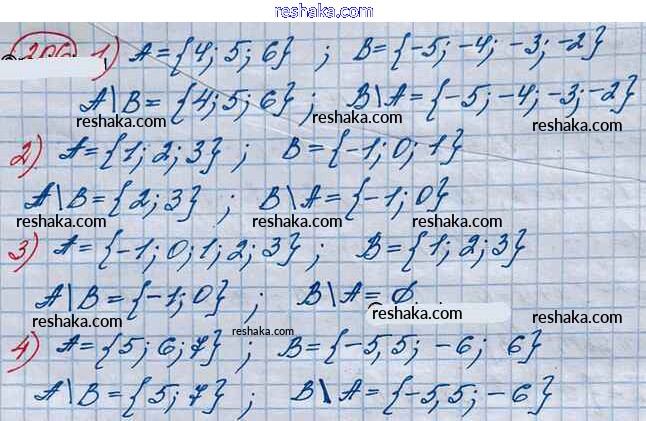 reshaka.com
206 1) A={4; 5; 6} ; B={-5; -4; -3; -2}
A\B= {4; 5; 6} ; B\A={-5; -4; -3; -2}
reshaka.com reshaka.com
2) A={1; 2; 3} ; B={-1; 0; 1}
A\B={2; 3} ; B\A={-1; 0}
reshaka.com reshaka.com reshaka.com
3) A={-1; 0; 1; 2; 3} ; B={1; 2; 3}
A\B={-1; 0} ; B\A=∅.
reshaka.com reshaka.com reshaka.com
4) A={5; 6; 7} ; B={-5,5; -6; 6}
A\B={5; 7} ; B\A={-5,5; -6}
reshaka.com reshaka.com
reshaka.com